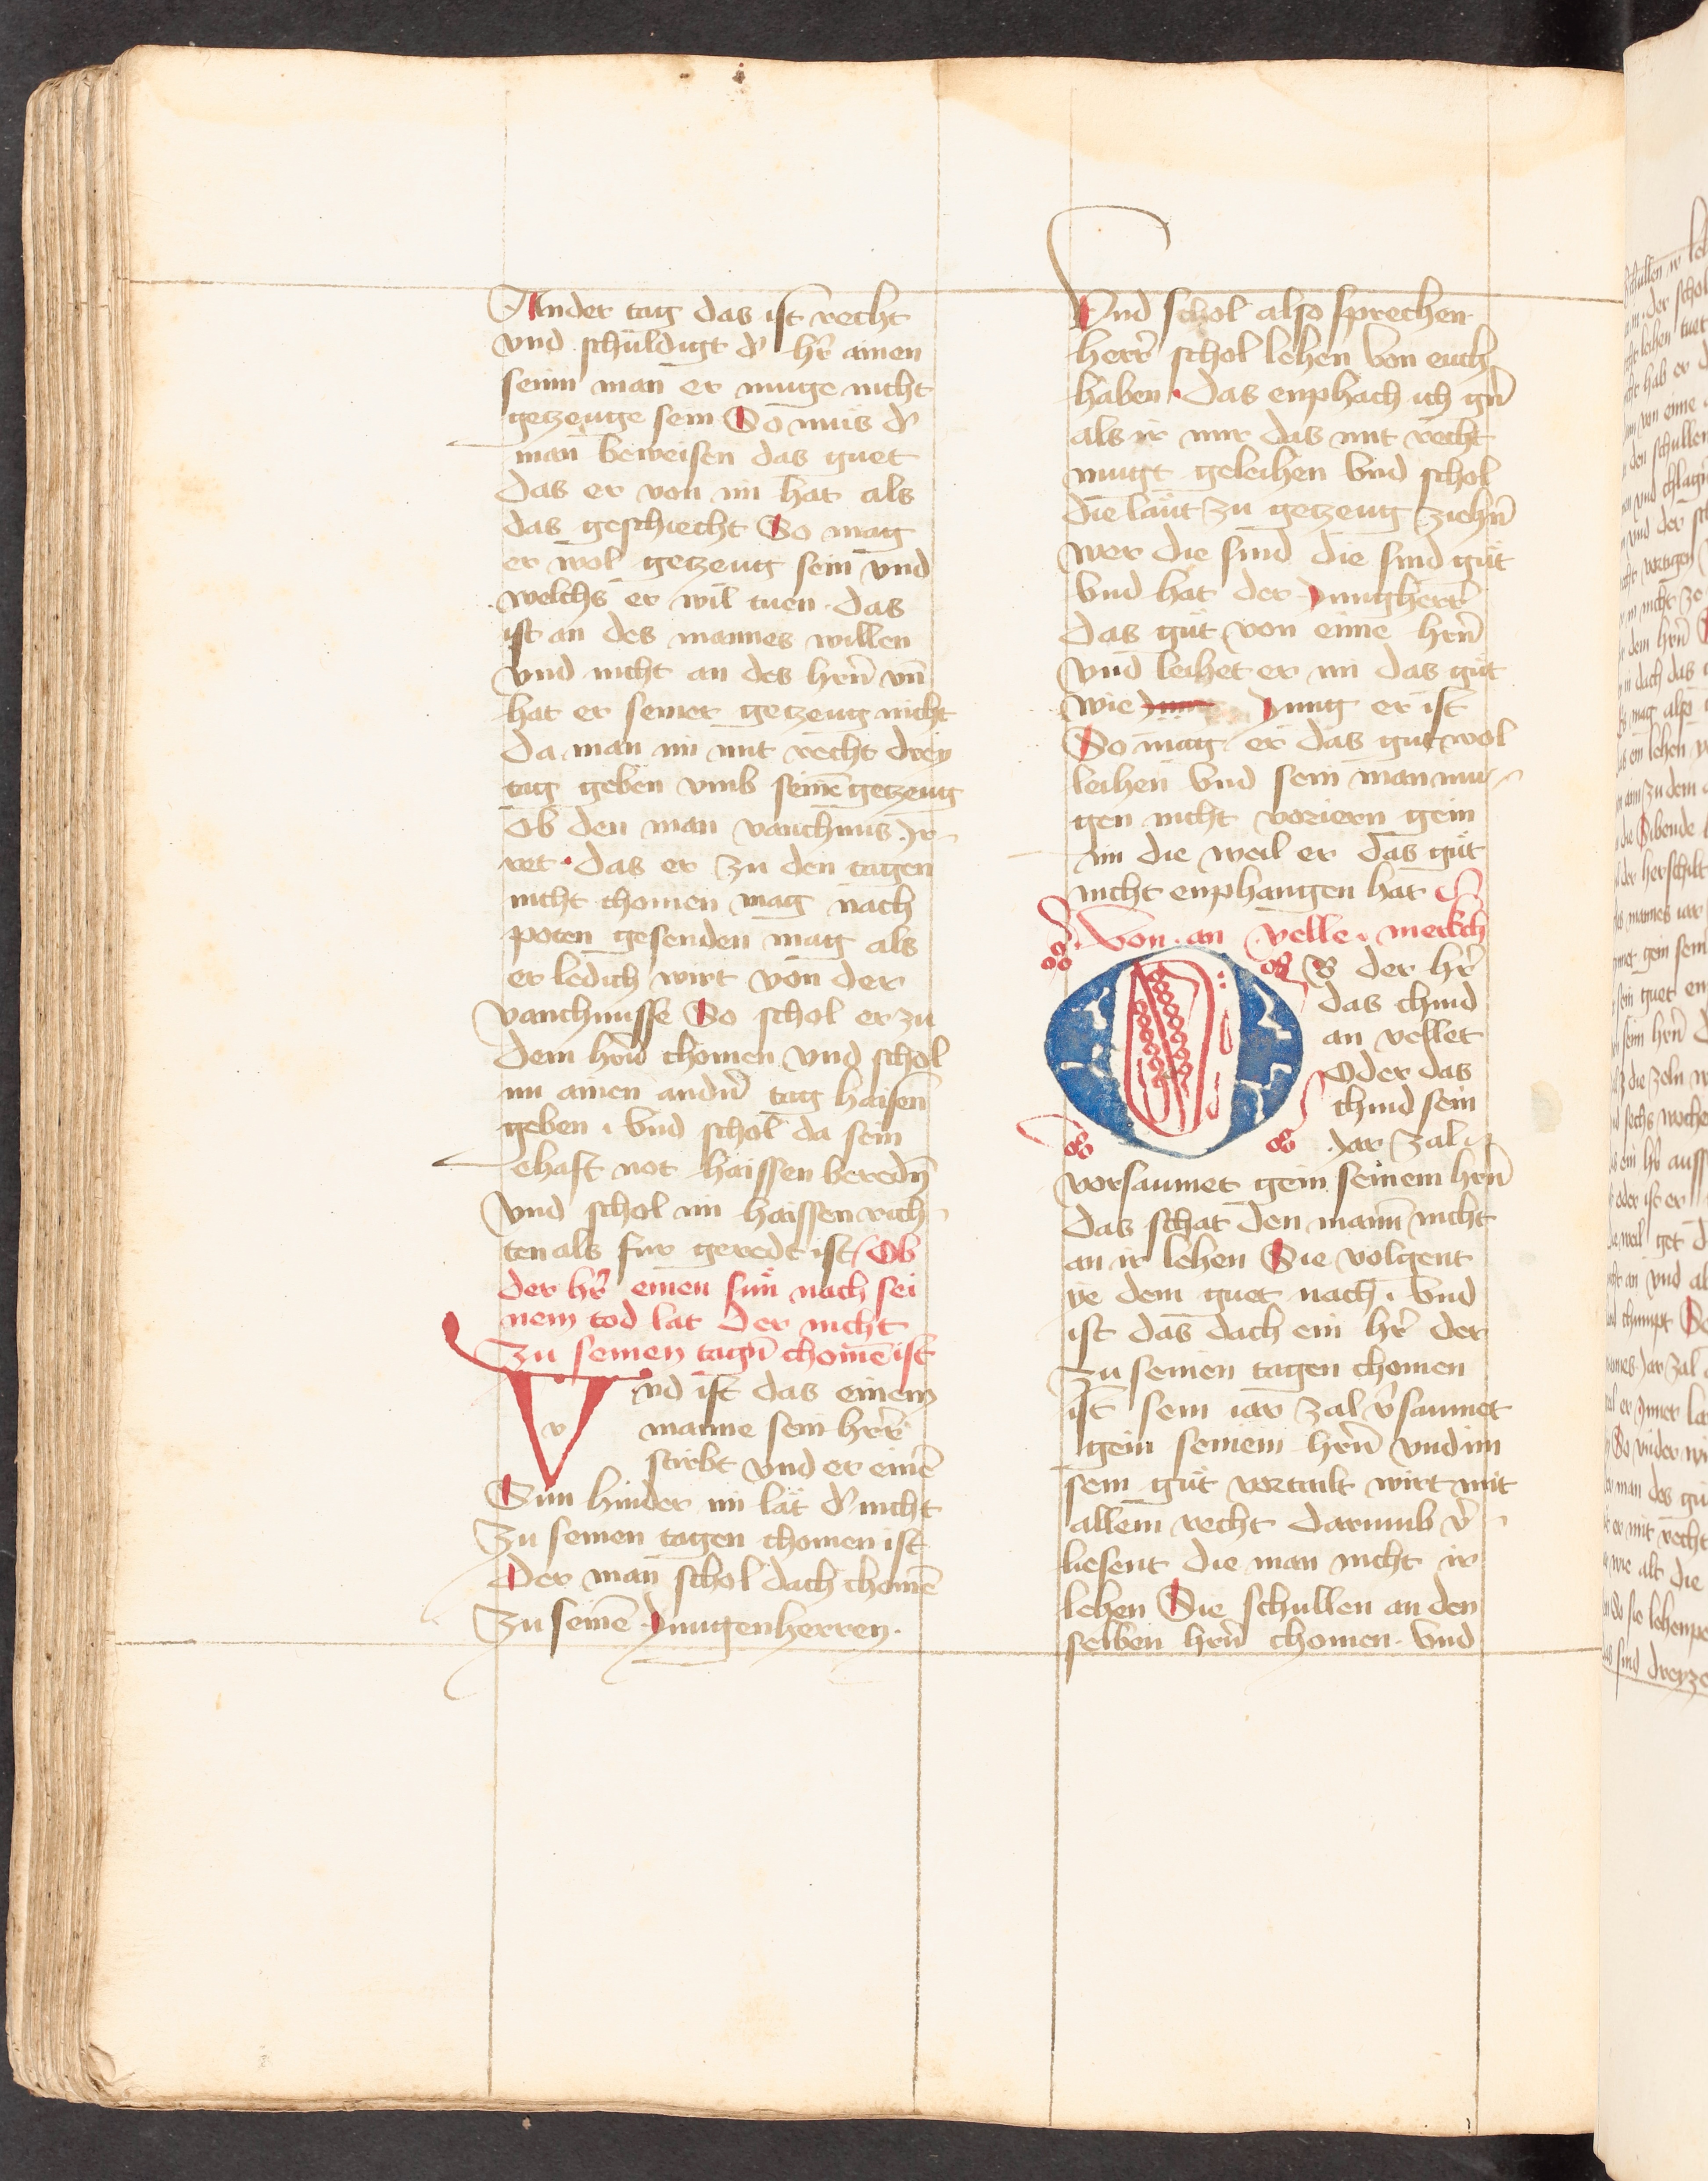 Ander tag das ist recht
vnd schuldigt d̕ hr̄ ainen
seinn man er muge nicht
getzeuge sein So mus d̕
man beweisen das guet
das er von im hat als
das geschiecht So mag
er wol getzeug sein vnd
welchs er wil tuen · das
ist an des mannes willen
vnd nicht an des hrn̄ vn̄
hat er seiner getzeug nicht
da man im mit recht drey
tag geben vmb seinē getzeug
Ob den man vanchnus Jr
ret · das er zu den tagen
nicht chomen mag nach
poten gesenden mag als
er ledich wirt von der
vanchnusse So schol er zu
dem hrn̄ chomen vnd schol
im ainen andn̄ tag haisen
geben · vnd schol da sein
ehaft not haissen beredn̄
vnd schol im haissen rich
ten als fur geredt ist Ob
der hr̄ einen sun nach sei
nem tod lat der nicht
zu seinen tagn̄ chomē ist
Vnd ist das einem
v
manne sein herr̄
stirbt vnd er einē
Sun hinder im lät d̕ nicht
zu seinen tagen chomen ist
Der man schol dach chomē
zu seinē Jungenherren ·
Vnd schol also sprechen
herr̄ schol lehen von euch
haben · das enphach ich gn̄
als ir mir das mit recht
mugt geleihen vnd schol
die läut zu getzeug ziehn̄
wer die sind die sind gůt
vnd hat der Jungherr̄
das gůt von eime hrn̄
vnd leihet er im das gůt
wie Jung er ist
So mag er das gut wol
leihen vnd sein man mu
gen nicht voriern gein
im die weil er das gůt
nicht enphangen hat
Von · an velle · merkch
OB der hr̄
das chind
an vellet
oder das
chind sein
Jar zal
vorsaumet gein seinem hrn̄
das schat den mann nicht
an ir lehen Sie volgent
ye dem guet nach · vnd
ist das dach ein hr̄ der
zu seinen tagen chomen
ist sein iar zal v̕saumet
gein seinem hrn̄ vnd im
sein gůt vertailt wirt mit
allem recht darumb v̕
liesent die man nicht ir
lehen Sie schullen an den
selben hrn̄ chomen · vnd